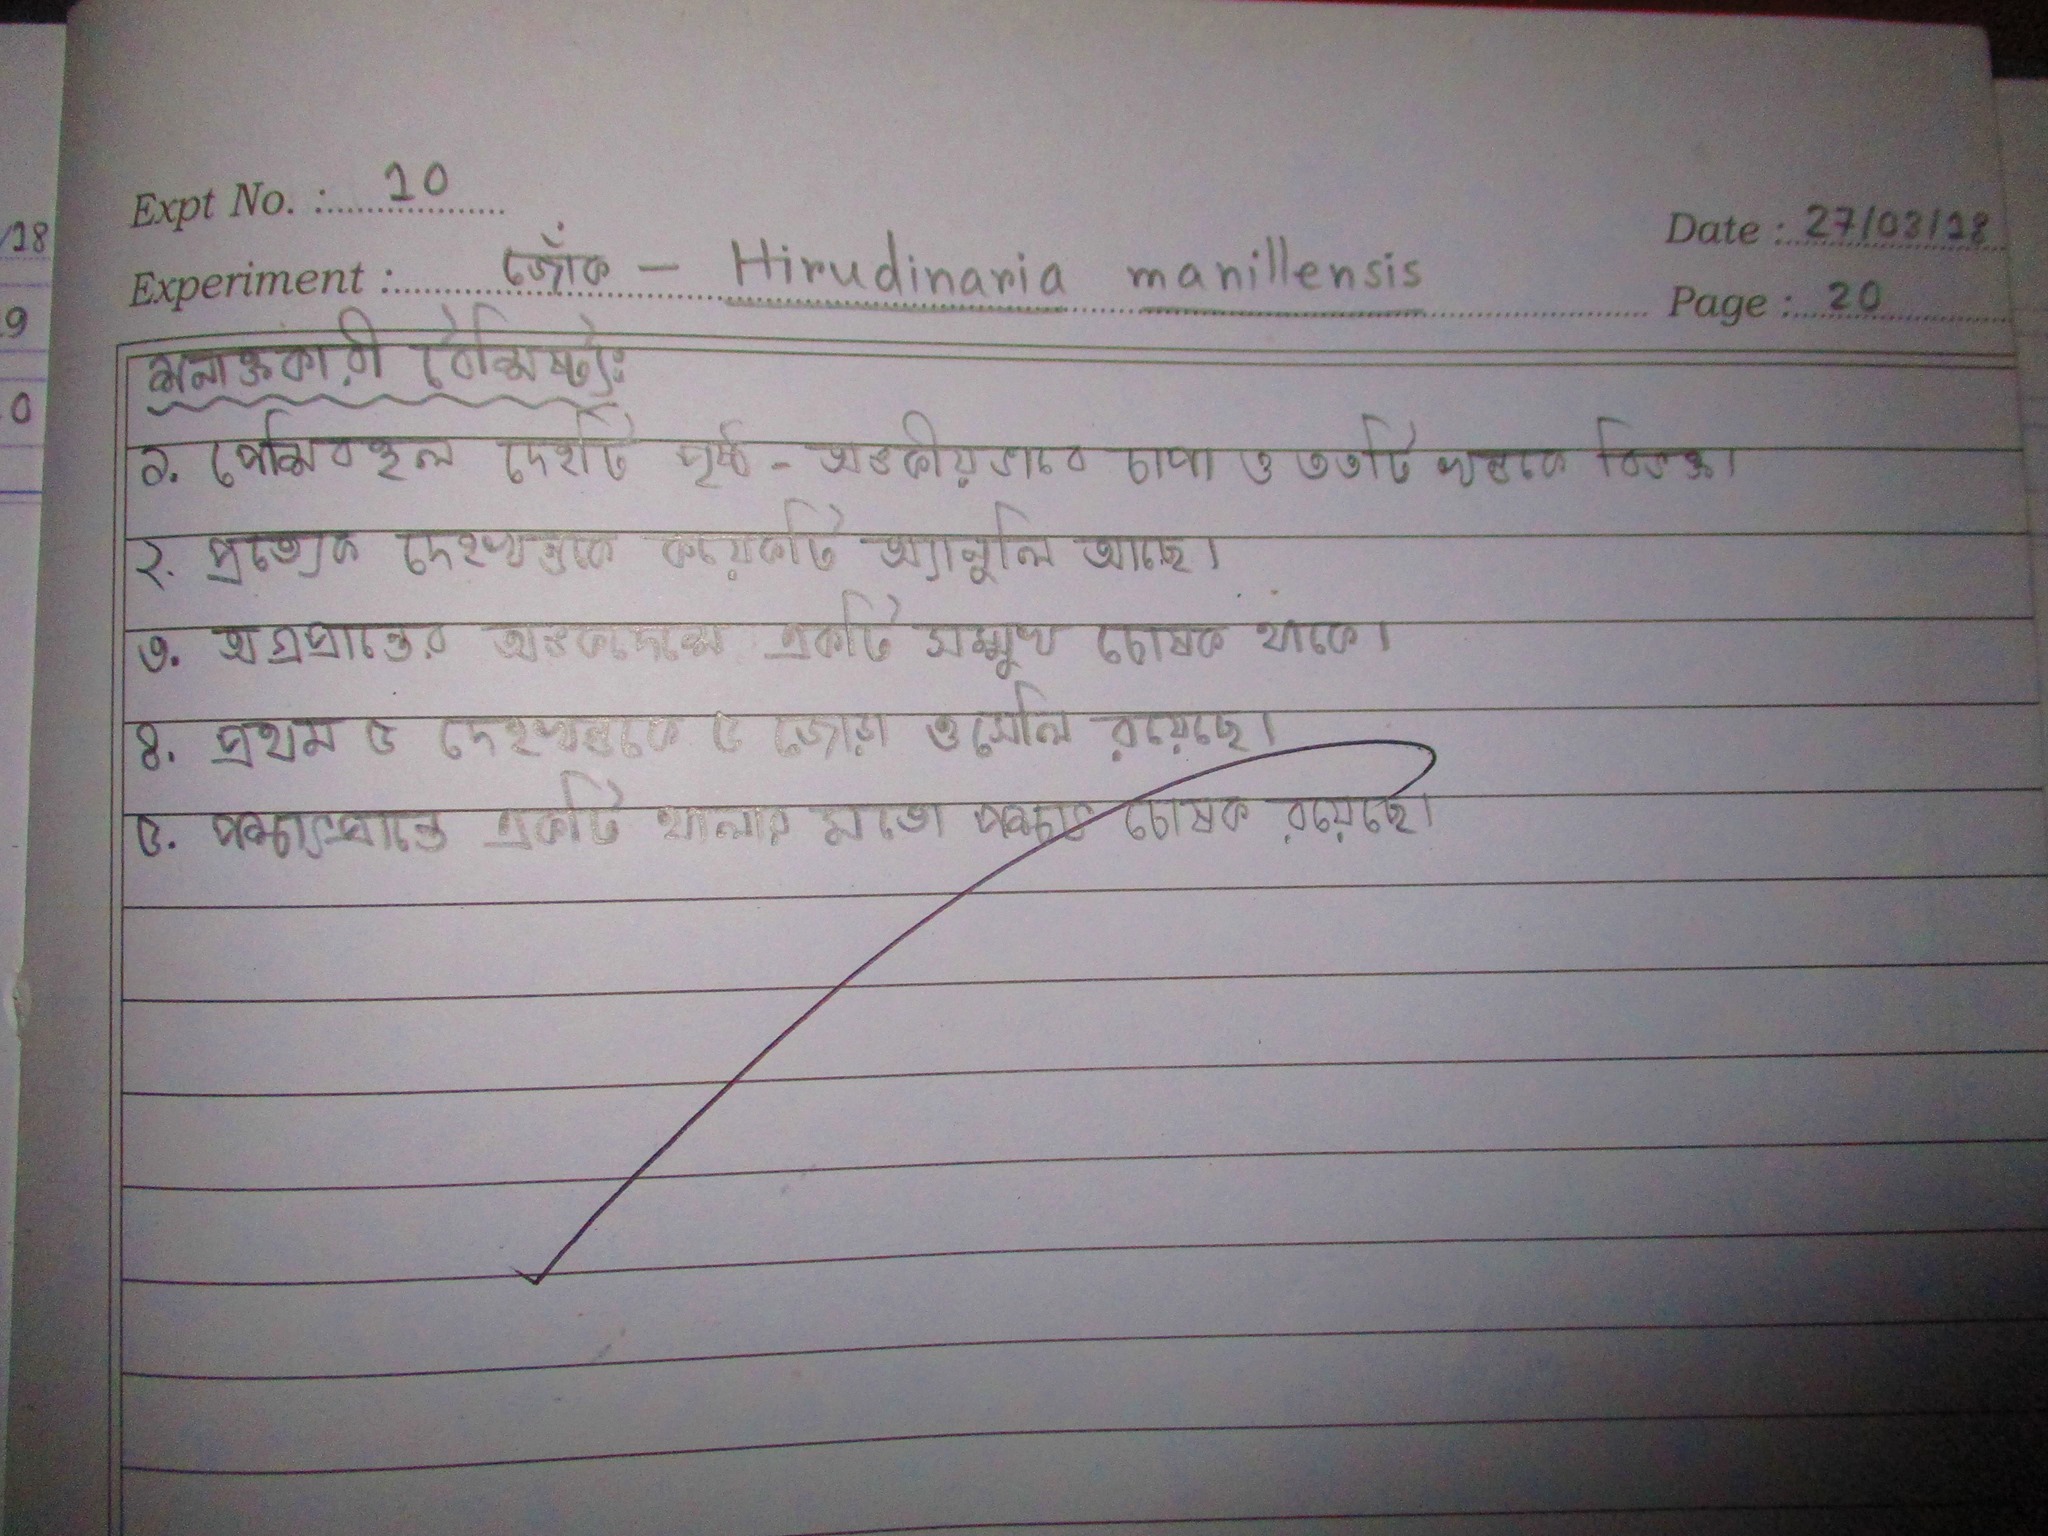 Expt No. : 10
Date : 27/03/18
Experiment : জোঁক - Hirudinaria manillensis
Page : 20
শনাক্তকারী বৈশিষ্ট্যঃ
১. পেশিবহুল দেহটি পৃষ্ঠ - অঙ্কীয়ভাবে চাপা ও ৩৩টি খন্ডকে বিভক্ত।
২. প্রত্যেক দেহখন্ডকে কয়েকটি অ্যানুলি আছে।
৩. অগ্রপ্রান্তের অঙ্কদেশে একটি সম্মুখ চোষক থাকে।
৪. প্রথম ৫ দেহখন্ডকে ৫ জোড়া ওসেলি রয়েছে।
৫. পশ্চাৎপ্রান্তে একটি থালার মতো পশ্চাৎ চোষক রয়েছে।
/18
9
0